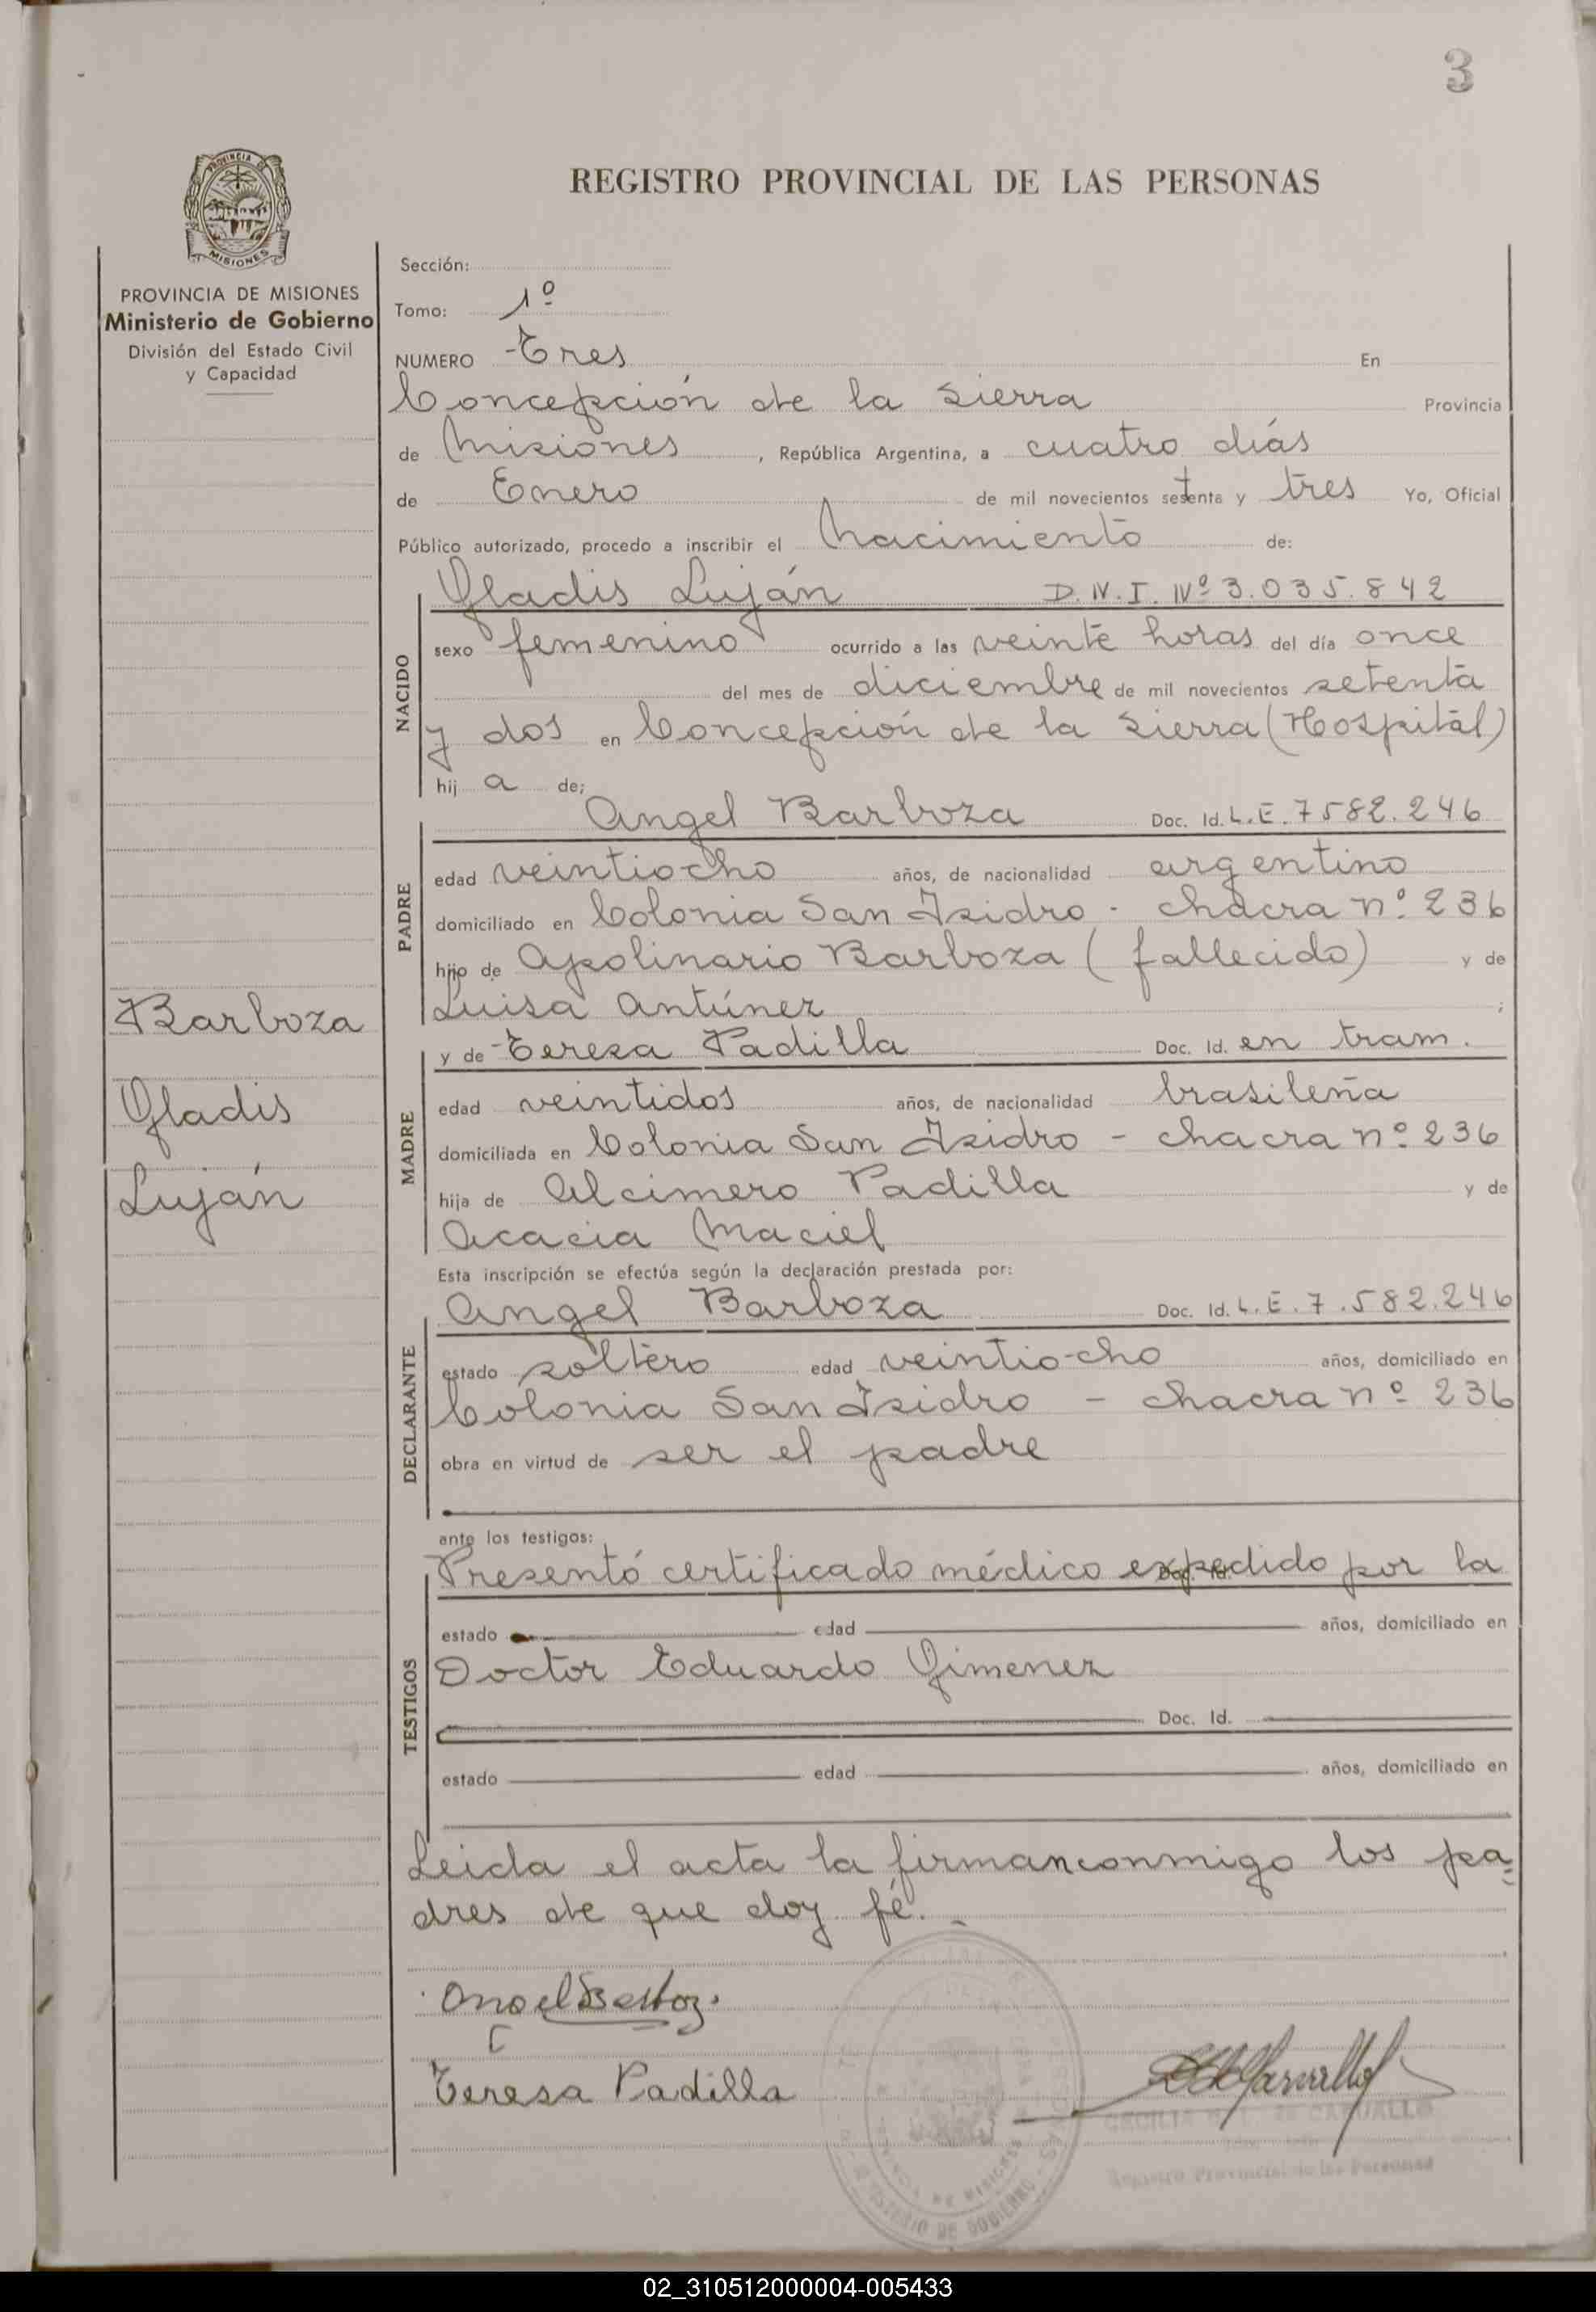 3
REGISTRO PROVINCIAL DE LAS PERSONAS
PROVINCIA DE
MISIONES
PROVINCIA DE MISIONES
Ministerio de Gobierno
División del Estado Civil
y Capacidad
Barboza
Gladis
Luján
Sección:
Tomo: 1º
NUMERO Tres En
Concepción de la Sierra Provincia
de Misiones, República Argentina, a cuatro días
de Enero de mil novecientos setenta y tres Yo, Oficial
Público autorizado, procedo a inscribir el Nacimiento de:
NACIDO
Gladis Luján D.N.I. Nº 3.035.842
sexo femenino ocurrido a las veinte horas del día once
del mes de diciembre de mil novecientos setenta
y dos en Concepción de la Sierra (Hospital)
hij a de;
PADRE
Angel Barboza Doc. Id. L.E. 7582.246
edad veintiocho años, de nacionalidad argentino
domiciliado en Colonia San Isidro - chacra nº 236
hijo de Apolinario Barboza (fallecido) y de
Luisa Antúnez ;
MADRE
y de Teresa Padilla Doc. Id. en tram.
edad veintidos años, de nacionalidad brasileña
domiciliada en Colonia San Isidro - chacra nº 236
hija de Alcimero Padilla y de
Acacia Maciel
Esta inscripción se efectúa según la declaración prestada por:
DECLARANTE
Angel Barboza Doc. Id. L.E. 7.582.246
estado soltero edad veintiocho años, domiciliado en
Colonia San Isidro - chacra nº 236
obra en virtud de ser el padre
ante los testigos:
TESTIGOS
Presentó certificado médico expedido por la
estado edad años, domiciliado en
Doctor Eduardo Gimenez
Doc. Id.
estado edad años, domiciliado en
Leida el acta la firmanconmigo los pa=
dres de que doy fé.
Angel Barboz
Teresa Padilla
CECILIA de CARVALLO
Registro Provincial de las Personas
02_310512000004-005433